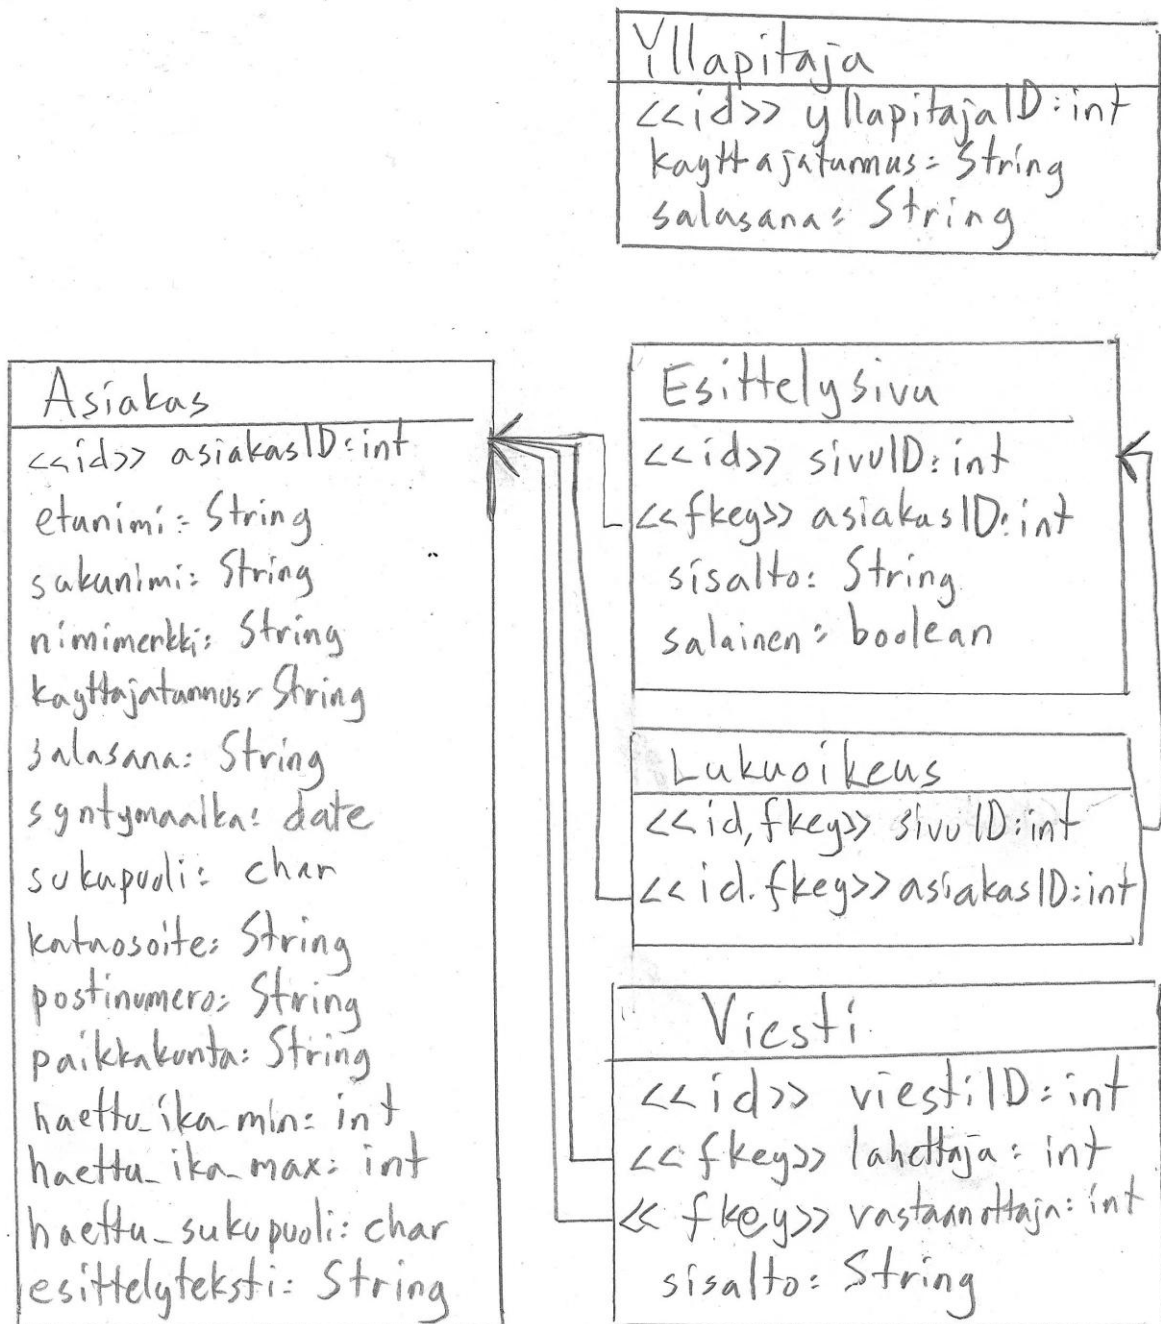 Yllapitaja
<<id>> yllapitajaID: int
kayttajatunnus: String
salasana: String
Asiakas
<<id>> asiakasID: int
etunimi: String
sukunimi: String
nimimerkki: String
kayttajatunnus: String
salasana: String
syntymaaika: date
sukupuoli: char
katuosoite: String
postinumero: String
paikkakunta: String
haettu_ika_min: int
haettu_ika_max: int
haettu_sukupuoli: char
esittelyteksti: String
Esittelysivu
<<id>> sivuID: int
<<fkey>> asiakasID: int
sisalto: String
salainen: boolean
Lukuoikeus
<<id,fkey>> sivuID: int
<<id.fkey>> asiakasID: int
Viesti
<<id>> viestiID: int
<<fkey>> lahettaja: int
<<fkey>> vastaanottaja: int
sisalto: String